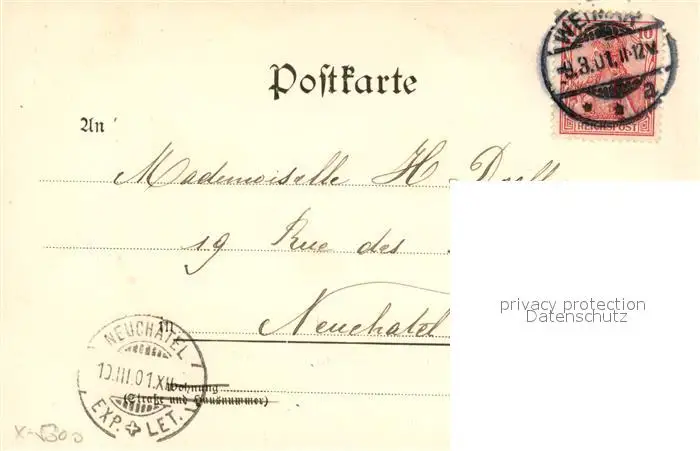 Postkarte
WEIMAR
9.3.01. 11-12V.
a
10
REICHSPOST
An
Mademoiselle H.
19 Rue des
in Neuchatel
NEUCHATEL
10.III.01.XII
EXP. LET.
Wohnung
(Straße und Hausnummer)
privacy protection
Datenschutz